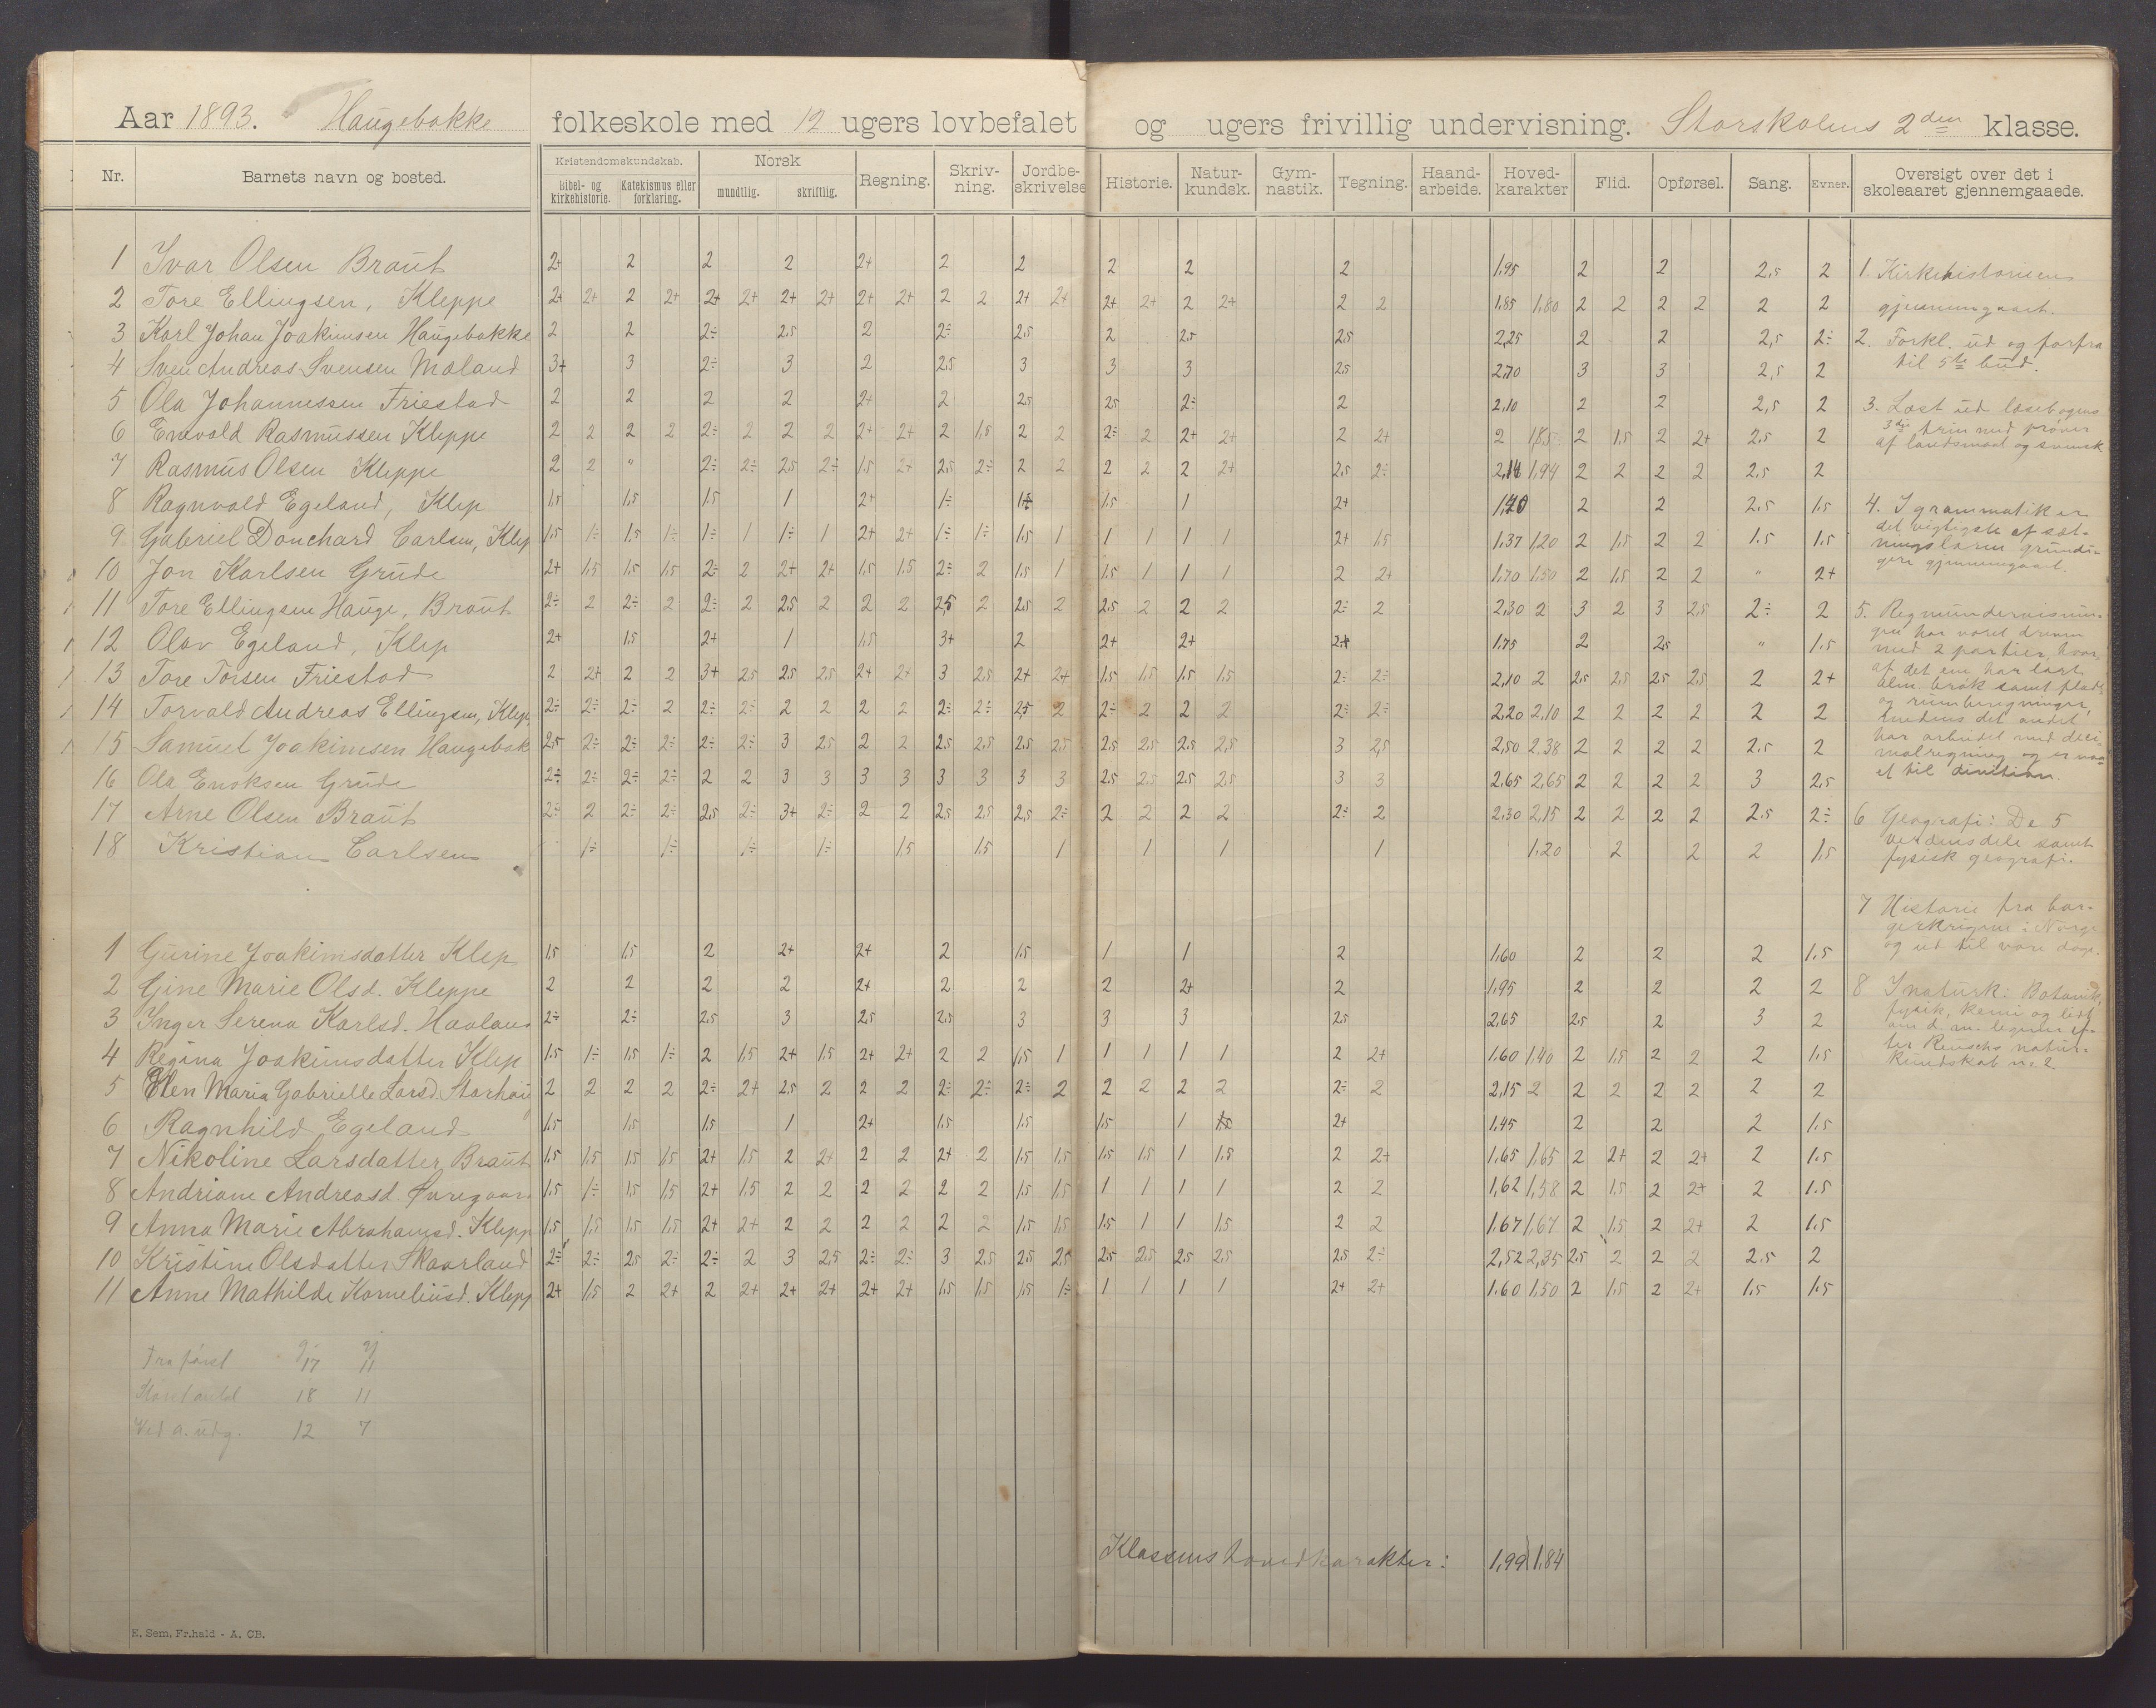 Aar 1893. Haugebakke folkeskole med 12 ugers lovbefalet og ugers frivillig undervisning. Storskolens 2den klasse.
Nr. Barnets navn og bosted. Kristendomskundskab. Norsk Regning. Skriv-ning. Jordbe-skrivelse Historie. Natur-kundsk. Gym-nastik. Tegning. Haand-arbeide. Hoved-karakter Flid. Opførsel. Sang. Evner. Oversigt over det i skoleaaret gjennemgaaede.
bibel- og kirkehistorie. Katekismus eller forklaring. mundtlig. skriftlig.
1 Ivar Olsen Braut 2+ 2 2 2 2+ 2 2 2 2 2 1,95 2 2 2,5 2
2 Tore Ellingsen, Kleppe 2+ 2+ 2 2+ 2+ 2+ 2+ 2+ 2+ 2+ 2 2 2+ 2+ 2+ 2+ 2 2+ 2 2 1,85 1,80 2 2 2 2 2 2
3 Karl Johan Joakimsen Haugebakke 2 2 2÷ 2,5 2 2÷ 2,5 2 2,5 2,5 2,25 2 2 2,5 2÷
4 Sven Andreas Svensen Mæland 3+ 3 2÷ 3 2 2,5 3 3 3 2,5 2,70 3 3 2,5 2
5 Ola Johannessen Friestad 2 2 2 2 2+ 2 2,5 2,5 2÷ 2 2,10 2 2 2,5 2
6 Enevold Rasmussen Kleppe 2 2 2 2 2÷ 2 2 2 2+ 2+ 2 1,5 2 2 2÷ 2 2+ 2+ 2 2+ 2 1,85 2 1,5 2 2+ 2,5 2
7 Rasmus Olsen Kleppe 2 2 " 2÷ 2÷ 2,5 2÷ 1,5 2+ 2,5 2÷ 2 2 2 2 2 2+ 2,5 2÷ 2,14 1,94 2 2 2 2 2,5 2
8 Ragnvald Egeland, Klep 1,5 1,5 1,5 1 2+ 1÷ 1,5 1,5 1 2+ 1,40 2 2 2,5 1,5
9 Gabriel Donchard Carlsen, Klep 1,5 1÷ 1,5 1÷ 1÷ 1 1÷ 1 2+ 2+ 1÷ 1÷ 1,5 1 1 1 1 1 2+ 1,5 1,37 1,20 2 1,5 2 2 1.5 1,5
10 Jon Karlsen Grude 2+ 1,5 1,5 1,5 2÷ 2 2+ 2+ 1,5 1,5 2÷ 2 1,5 1 1,5 1 1 1 2 2+ 1,70 1,50 2 1,5 2 2 " 2+
11 Tore Ellingsen Hauge, Braut 2÷ 2 2÷ 2 2÷ 2 2,5 2 2 2 2,5 2 2,5 2 2,5 2 2 2 2÷ 2 2,30 2 3 2 3 2,5 2÷ 2
12 Olav Egeland, Klep 2+ 1,5 2+ 1 1,5 3+ 2 2+ 2+ 2+ 1,75 2 2,5 " 1.5
13 Tore Torsen Friestad 2 2+ 2 2 3+ 2,5 2,5 2,5 2+ 2+ 3 2,5 2+ 2+ 1,5 1,5 1,5 1,5 2÷ 2÷ 2,10 2 2,5 2,5 2,5 2,5 2 2+
14 Torvald Andreas Ellingsen, Klep 2÷ 2÷ 2÷ 2 2÷ 2÷ 2 2 2 2 2÷ 2÷ 2,5 2 2÷ 2 2 2 2÷ 2÷ 2,20 2,10 2 2 2 2 2 2
15 Samuel Joakimsen Haugebak 2,5 2÷ 2÷ 2÷ 2÷ 2÷ 3 2,5 2 2 2,5 2,5 2,5 2,5 2,5 2,5 2,5 2,5 3 2,5 2,50 2,38 2 2 2 2 2,5 2
16 Ola Enoksen Grude 2÷ 2÷ 2÷ 2÷ 2 2 3 3 3 3 3 3 3 3 2,5 2,5 2,5 2,5 3 3 2,65 2,65 2 2 2 2 3 2,5
17 Arne Olsen Braut 2÷ 2 2÷ 2÷ 2,5 2÷ 3+ 2÷ 2 2 2,5 2,5 2,5 2÷ 2 2 2 2 2÷ 2 2,30 2,15 2 2 2 2 2.5 2÷
18 Kristian Carlsen 1÷ 1÷ 1÷ 1÷ 1,5 1,5 1 1 1 1 1,20 2 2 2 1,5
1 Gurine Joakimsdatter Klep 1,5 1,5 2 2+ 2+ 2 1,5 1 1 2 1,60 2 2 2 1,5
2 Gine Marie Olsd. Kleppe 2 2 2 2 2+ 2 2 2 2+ 2 1,95 2 2 2 2
3 Inger Serena Karlsd. Havlan 2÷ 2÷ 2,5 3 2,5 2,5 3 3 3 2,5 2,65 2,5 2 3 2
4 Regina Joakimsdatter Klep 1,5 1÷ 1,5 1÷ 2 1,5 2+ 1,5 2+ 2+ 2 2 1,5 1 1 1 1 1 2 2+ 1,60 1,40 2 1,5 2 2 2 1,5
5 Elen Maria Gabrielle Larsd. Storhaug 2 2 2 2 2÷ 2+ 2,5 2 2 2 2÷ 2÷ 2÷ 2 2 2 2 2 2÷ 2 2,15 2 2 2 2 2 2 2
6 Ragnhild Egeland 1,5 1,5 1,5 1 2+ 1,5 1,5 1,5 1 1,5 2+ 1,45 2 2 2 1,5
7 Nikoline Larsdatter Braut 1,5 1,5 1,5 1,5 2+ 1,5 2 2+ 2 2 2+ 2 1,5 1,5 1,5 1,5 1 1,5 2 2+ 1,65 1,65 2 2+ 2 2+ 2 1,5
8 Andriane Andreasd. Øvregaar 1,5 1÷ 1,5 1,5 2+ 1,5 2 2 2 2 2 2 1,5 1,5 1 1 1 1 2 2 1,62 1,58 2 1,5 2 2+ 2 1.5
9 Anna Marie Abrahamsd. Klepp 1,5 1,5 1,5 1,5 2+ 2+ 2 2 2 2 2 2 1,5 1,5 1,5 1 1 1,5 2 2 1,67 1,67 2 1,5 2 2+ 2 1.5
10 Kristine Olsdatter Skaarland 2÷ 2÷ 2,5 2÷ 2÷ 2 3 2,5 2÷ 2÷ 3 2,5 2,5 2,5 2,5 2,5 2,5 2,5 2,5 2÷ 2,52 2,35 2,5 2 2 2 2.5 2
11 Anne Mathilde Korneliusd. Klepp 2+ 1,5 2 2+ 2 2+ 2+ 2+ 2+ 2+ 1,5 1,5 1,5 1÷ 1 1 1 1 2+ 2+ 1,60 1,50 2 1,5 2 2+ 1,5 1,5
Fra først 17 11
18 11
Ved a. udg. 12 7
Klassens hovedkarakter: 1,99 1,84
1 Kirkehistorien
gjennemgaaet.
2. Forkl. ud og forfra
til 5te bud.
3. Læst ud læsebogens
3dje trin med prøver
af landsmaal og svensk
4. I grammatiken
det vigtigste af sæt-
ningslæren grundi-
gere gjennemgaaet.
5. Regneundervisnin-
gen har været dreven
med 2 partier, hvor-
af det ene har lært
alm. brøk samt flade
og rumberegninger,
medens det andet
har arbeidet med deci-
malregning og er naa-
et til division.
6 Geografi: De 5
verdensdele samt
fysisk geografi.
7 Historie fra bor-
gerkrigene i Norge
og ud til vore dage.
8 I natursk: Botanik,
fysik, kemi og lidt
om d. m. legeme ef-
ter Reuschs natur-
kundskab n. 2.
E. Sem, Fr.hald - A. CB.